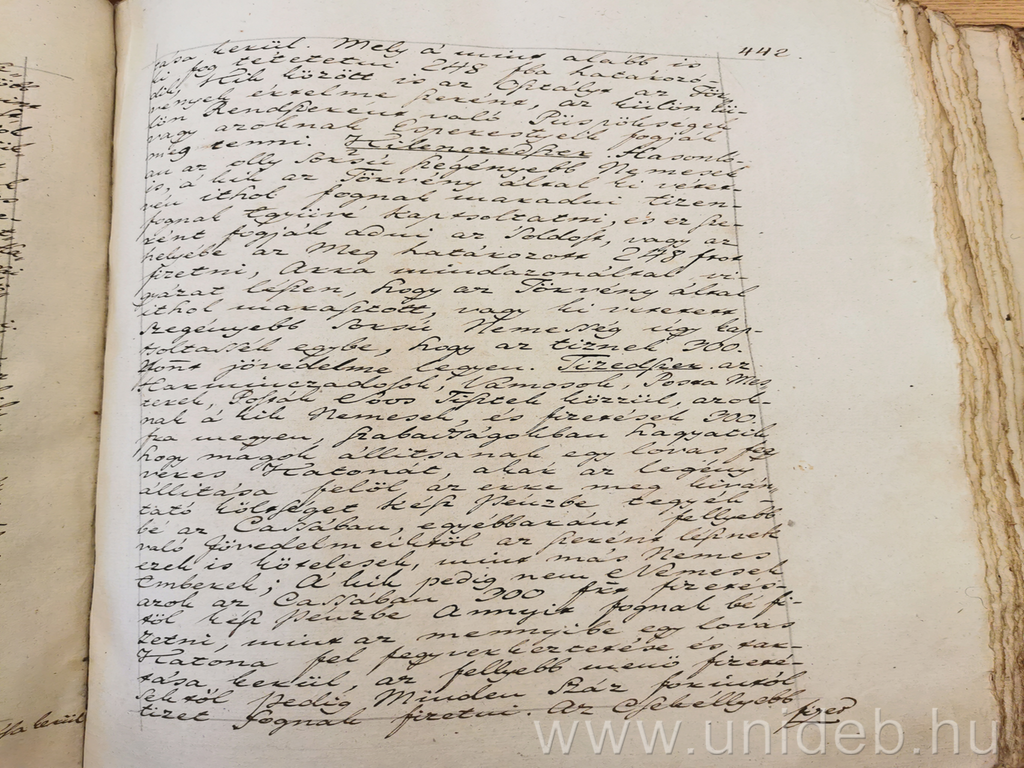 442.
tása kerül. Mely á mint alább is
ki fog tétetetni 248 fra határozó-
dik, Kik között is az Osztályt az Tör-
vények értelme szerént, az külön kü-
lön Rendszerént való Püspökségek
vagy azoknak Esperestjeik fogják
meg tenni. Kilenczedszer Hasonló-
an az olly sorsú szegényebb Nemesek
is, a kik az Törvény által ki vetet-
vén ithol fognak maradni tizen-
fognak Együvé kaptsoltatni, és ez sze-
rént fogják adni az Soldost, vagy az
helyébe az Meg határozott 248 frot
fizetni, Arra mindazonáltal vi-
gyázat lészen, hogy az Törvény által
ithol marasztott, vagy ki vetetett
szegényebb sorsú Nemesség úgy kap-
tsoltassék egybe, hogy az tíznek 300.
font jövedelme legyen. Tizedszer az
Harminczadosok, Vámosok, Posta Mes-
terek, Posták Sóos Tisztek közzül, azok-
nak á kik Nemesek, és fizetések 300.
fra megyen, szabadságokban hagyatik
hogy magok állítsanak egy lovas fe
veres Katonát, akár az legény
állitása felöl az erre meg kíván-
tató költséget kész Pénzbe tegyék-
bé az Cassában, egyebbaránt fellyebb
való Jövedelmeiktöl az szerént lésznek
ezek is kötelesek, mint más Nemes
Emberek; Á kik pedig nem Nemesek
azok az Cassában 300 frt fizetés-
töl kész Pénzbe Annyit fognak bé fi-
zetni, mint az mennyibe egy lovas
Katona fel fegyverkeztetése és tar-
tása kerül, az fellyebb menö fizeté-
sektöl pedig Minden száz forintól
tizet fognak fizetni. Az Csekéllyebb
fizeté
sa kerül
www.unideb.hu